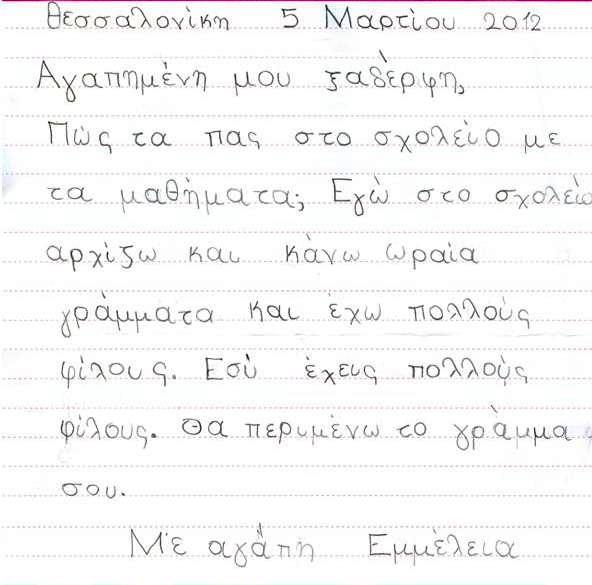 Θεσσαλονίκη 5 Μαρτίου 2012
Αγαπημένη μου ξαδέρφη,
Πώς τα πας στο σχολείο με
τα μαθήματα; Εγώ στο σχολείο
αρχίζω και κάνω ωραία
γράμματα και έχω πολλούς
φίλους. Εσύ έχεις πολλούς
φίλους. Θα περιμένω το γράμμα
σου.
Μέ αγάπη Εμμέλεια